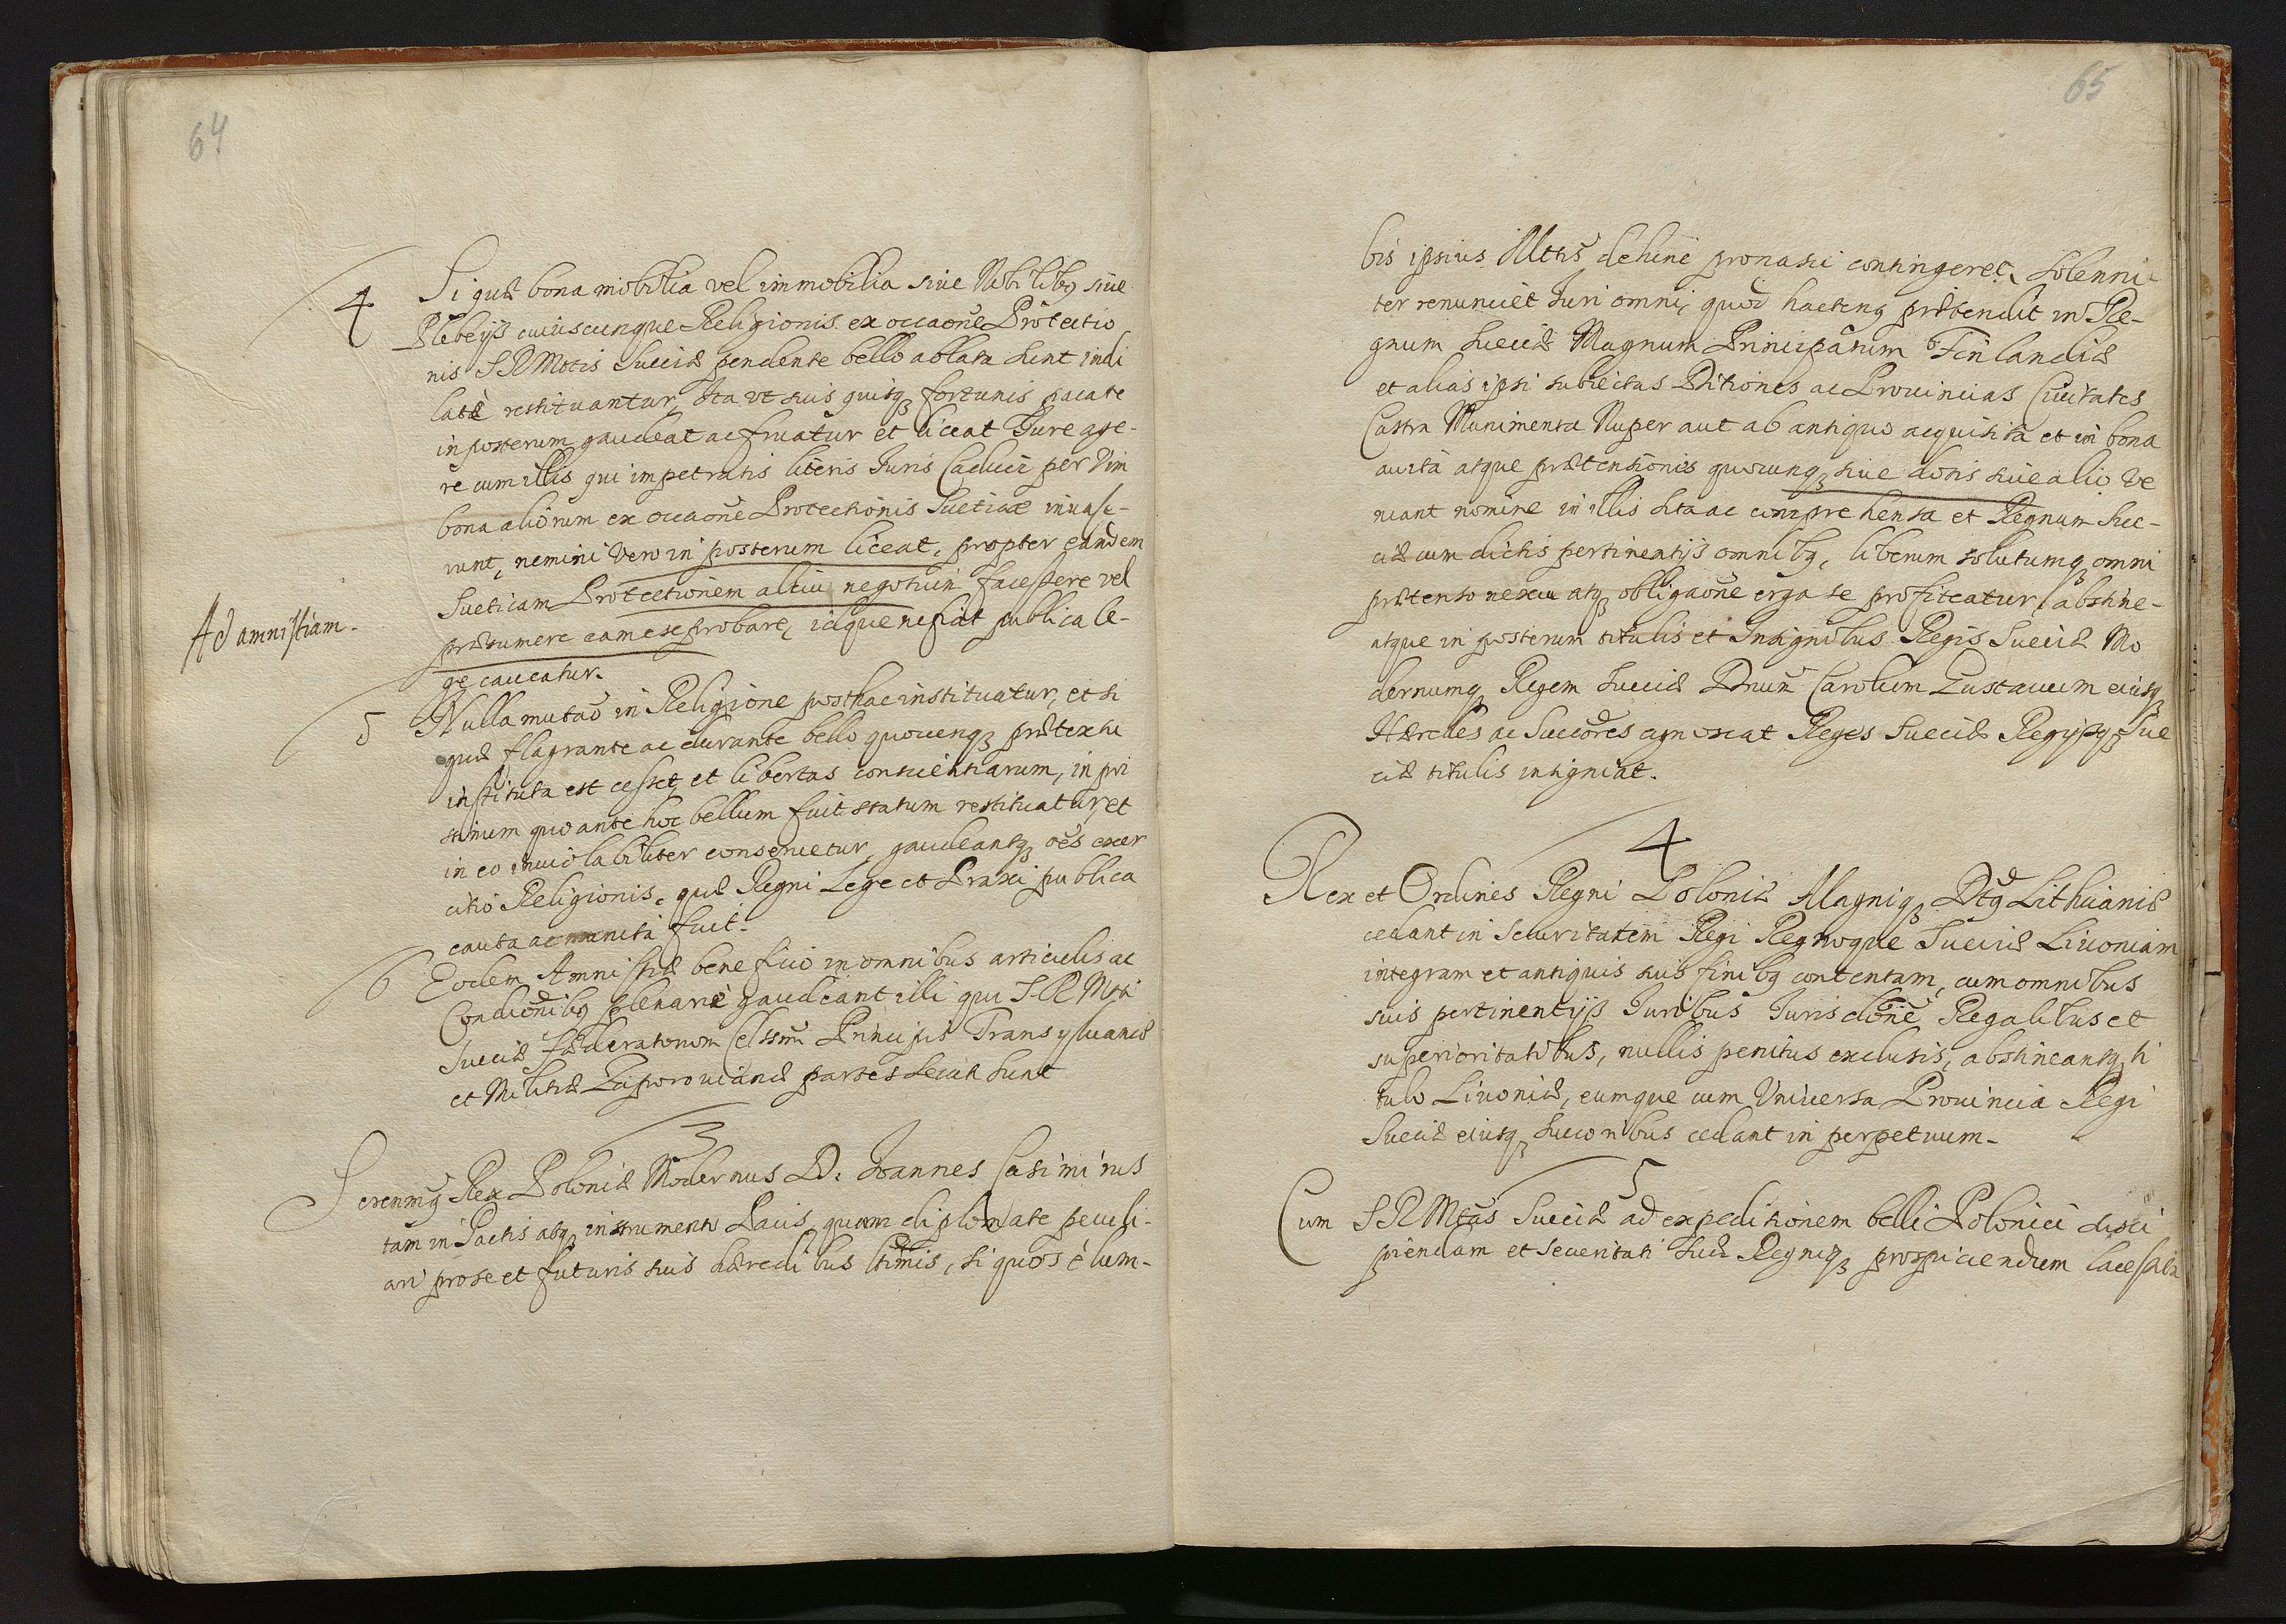 64
4 Si quæ bona mobilia vel immobilia siue Nobilibꝫ siue
Plebeijs cuiuscunque Religionis ex occaõne Protectio
nis S R Mttis Sueciæ pendente bello ablata sint indi
latè restituantur, Ita vt suis quisqꝫ fortunis pacate
in posterum gaudeat ac fruatur et liceat Iure age-
re cum illis qui impetratis literis Iuris Caduci per Vim
bona aliorum ex occaõne Protectionis Sueticæ inuase-
runt, nemini vero in posterum liceat, propter eandem
Sueticam Protectionem alicui negotium facessere vel
Ad amnistiam.
præsumere eamese probare, idque ne fiat publica le-
ge caueatur.
5 Nulla mutaõ in Religione posthac instituatur, et si
quæ flagrante ac durante bello quocunqꝫ prætextu
instituta est cesset, et libertas conscientiarum, in pri
stinum quo ante hoc bellum fuit statum restituatur, et
in eo inuiolabiliter conseruetur, gaudeantqꝫ oẽs exer
citio Religionis, quæ Regni Lege et Praxi publica
cauta ac munita fuit.
6 Eodem Amnistiæ beneficio in omnibus articulis ac
Condiõnibꝫ plenarie gaudeant illi qui S. R Mtti
Sueciæ fæderatorum Celssmi Principis Transyluaniæ
et Militiæ Zaporouianæ partes secuti sunt
3
Serenmꝫ Rex Poloniæ Modernus D: Ioannes Casimirus
tam in Pactis atqꝫ instrumento Pacis, quam diplomate peculi-
ari pro se et futuris suis hæredibus ltimis, si quos è lum-
65
bis ipsius Mttis dehinc pronasci contingeret, solenni
ter renunciet Iuri omni, quod hactenꝫ prætendit in Re-
gnum Sueciæ Magnum Principatum Finlandiæ
et alias ipsi subiectas Ditiones ac Prouincias Ciuitates
Castra Munimenta Nuper aut ab antiquo acquisita et in bona
auita atque prætensionis quocunqꝫ siue dotis siue alio ve
niant nomine in illis sita ac comprehensa et Regnum Sue-
ciæ cum dictis pertinentijs omnibꝫ, liberum solutumqꝫ omni
prætenso nexu atqꝫ obligaõne erga se profiteatur, abstine-
atque in posterum titulis et Insignibus Regis Sueciæ Mo
dernumqꝫ Regem Sueciæ Dnum Carolum Gustauum eiusqꝫ
Hæredes ac Succõres agnoscat Reges Sueciæ Regijsqꝫ Sue
ciæ titulis insigniat.
4
Rex et Ordines Regni Poloniæ Magniqꝫ Dtꝫ Lithuaniæ
cedant in securitatem Regi Regnoque Sueciæ Liuoniam
integram et antiquis suis finibꝫ contentam, cum omnibus
suis pertinentijs Iuribus Iurisdiõne Regalibus et
superioritatibus, nullis penitus exclusis, abstineantqꝫ ti
tulo Liuoniæ, eumque cum Vniuersa Prouincia Regi
Sueciæ eiusqꝫ succoribus cedant in perpetuum.
5
Cum S R Mttas Sueciæ ad expeditionem belli Polonici susci
piendam et securitati suæ Regniqꝫ prospiciendum lacessita